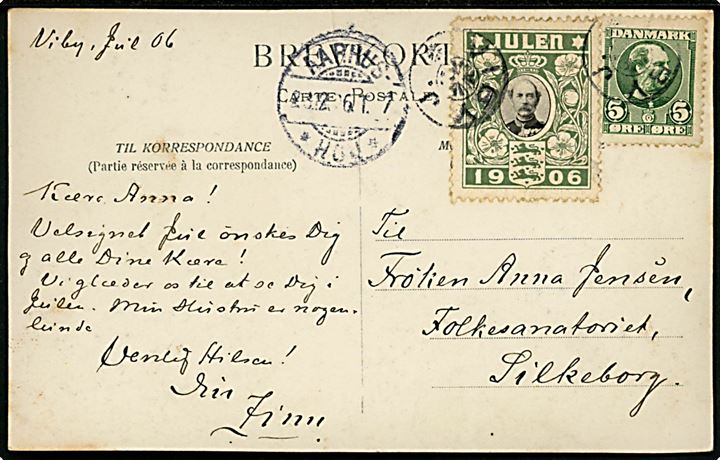 Viby, Jul 06
BRE
KORT
CARTE POSTALE
AARHUS
HØJ
JULEN
1906
DANMARK
5 5
ØRE ØRE
TIL KORRESPONDANCE
(Partie réservée à la correspondance)
Kære Anna!
Velsignet Jul ønskes Dig
og alle Dine Kære!
Vi glæder os til at se Dig i
Julen. Min Hustru er nogen-
lunde
Venlig Hilsen!
Din
Finn
Til
Frøken Anna Jensen,
Folkesanatoriet,
Silkeborg.